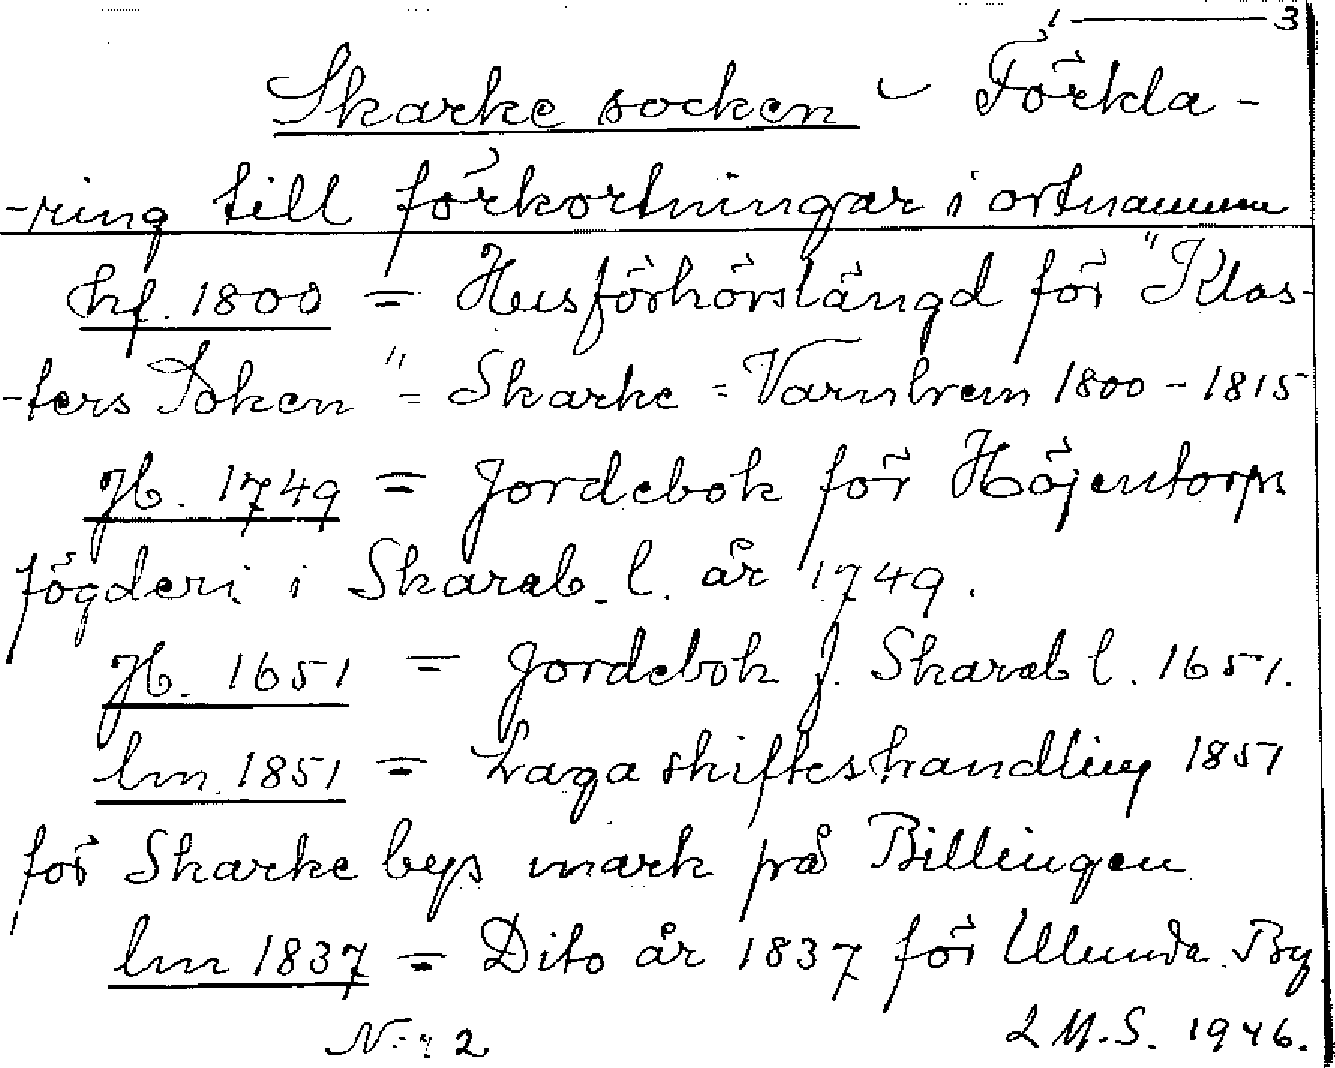 1 — 3
Skarke socken - Förkla-
-ring till förkortningar i ortnamnen
hf. 1800 = Husförhörslängd för "Klos-
-ters Soken" = Skarke = Varnhem 1800-1815
Jb. 1749 = Jordebok för Höjentorps
fögderi i Skarab. l. år 1749.
Jb. 1651 = Jordebok f. Skarab l. 1651.
lm 1851 = Laga skifteshandling 1851
för Skarke bys mark på Billingen
lm 1837 = Dito år 1837 för Ulunda By
N:r 2
L M.S. 1946.